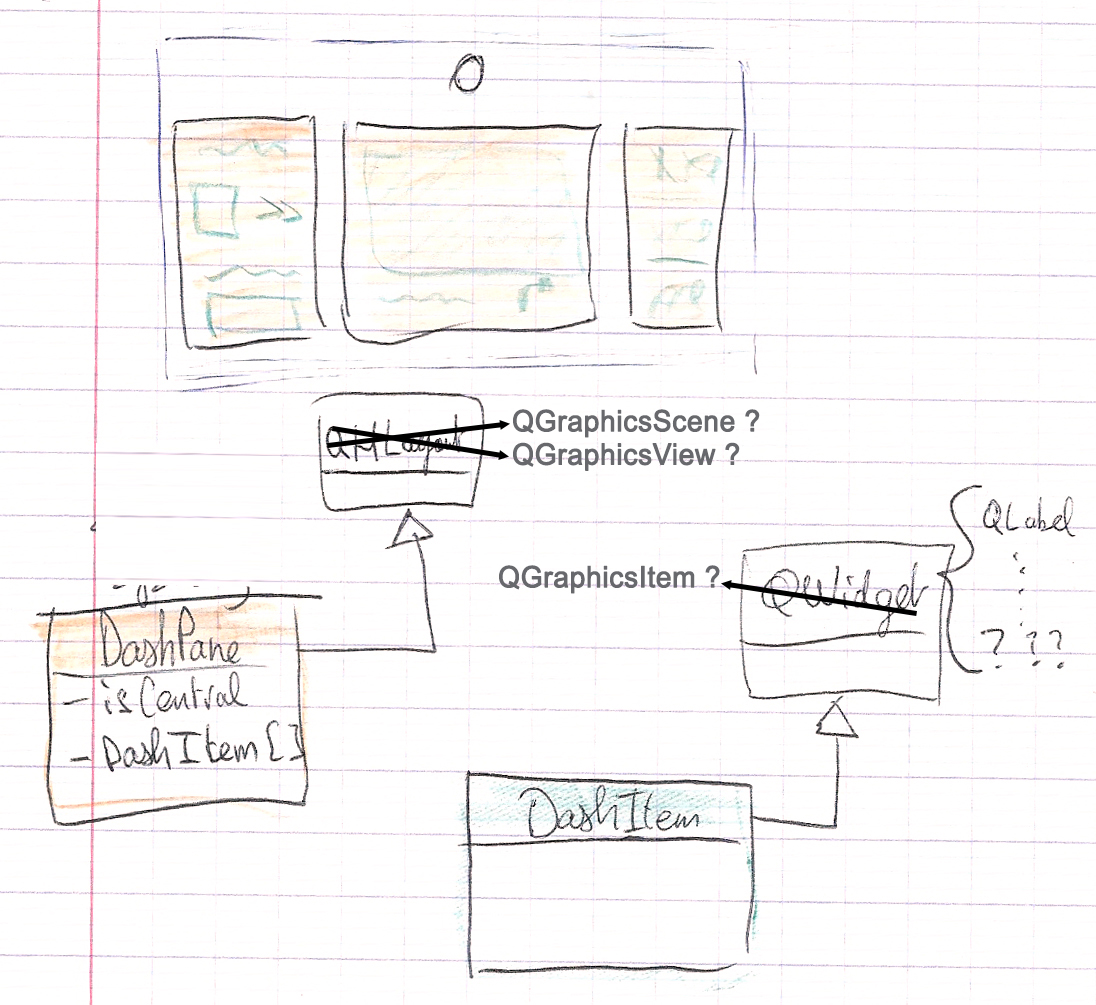 QGraphicsScene ?
QHLayout
QGraphicsView ?
QLabel
QGraphicsItem ?
QWidget
? ? ?
DashPane
- isCentral
- DashItem []
DashItem